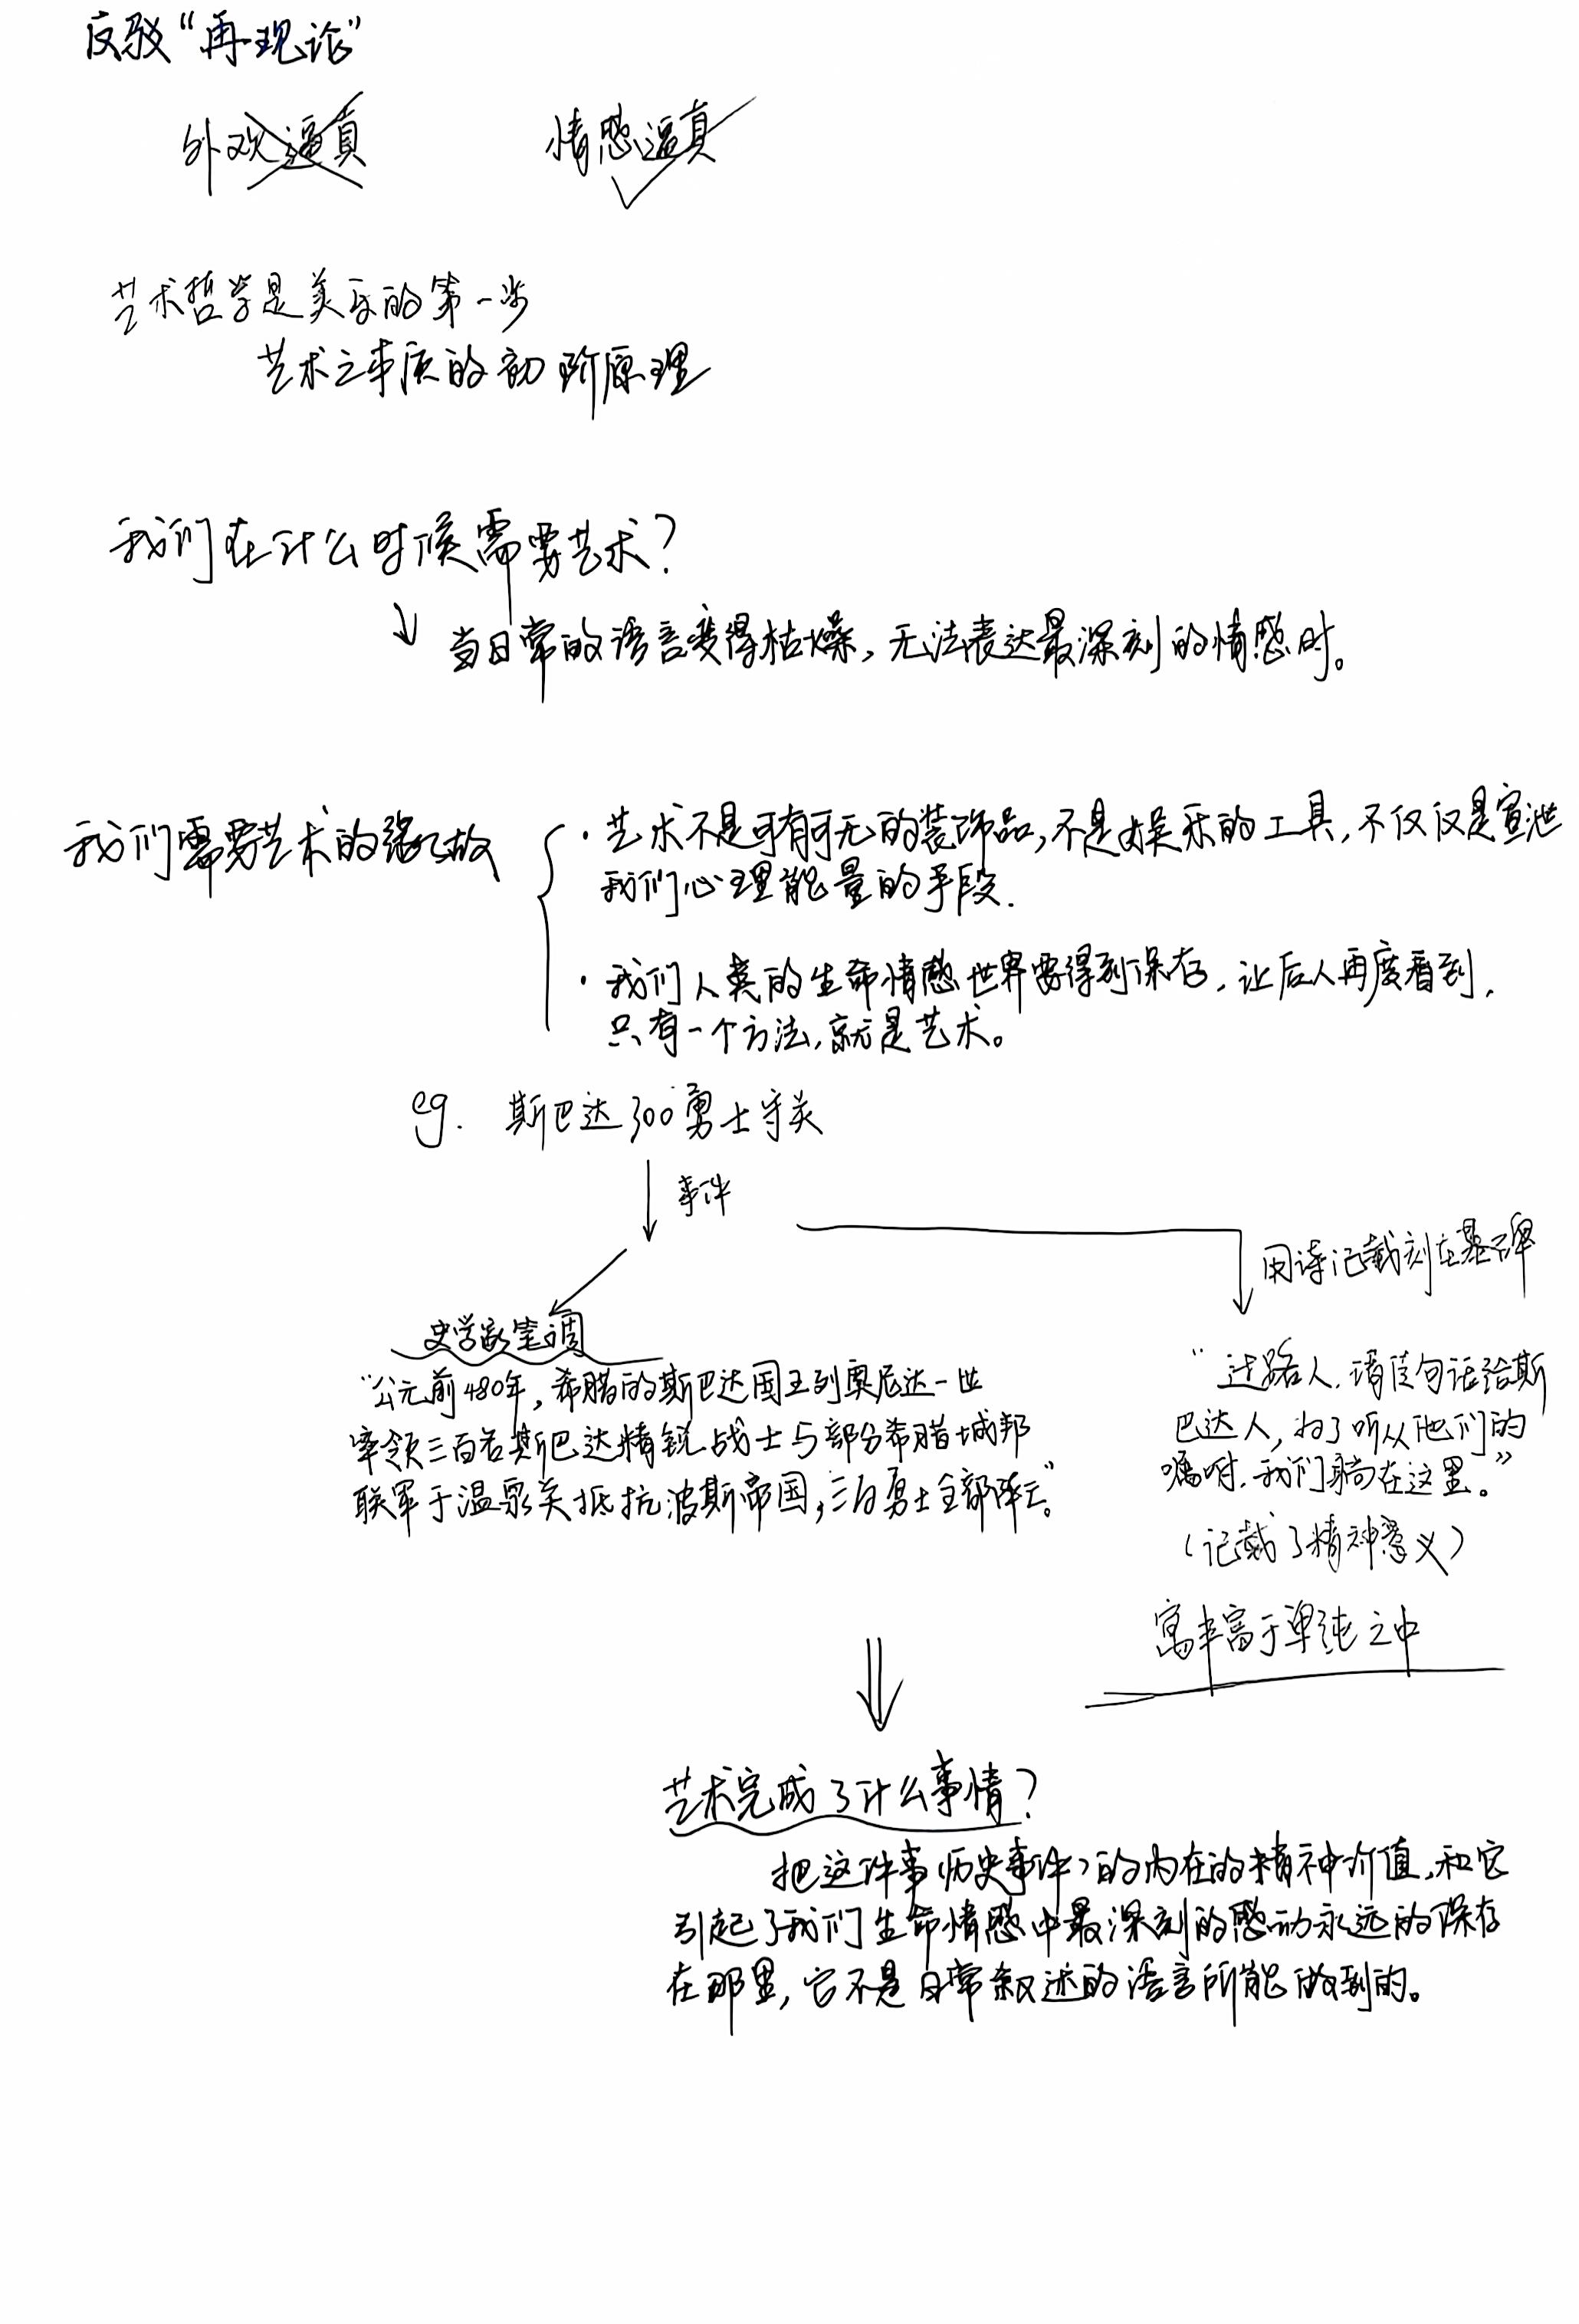 反驳“再现论”
外观逼真 情感逼真
艺术哲学是美学的第一步
艺术之本质的初阶原理
我们在什么时候需要艺术?
当日常的语言变得枯燥,无法表达最深刻的情感时。
我们需要艺术的缘故
·艺术不是可有可无的装饰品,不是娱乐的工具,不仅仅是宣泄
我们心理能量的手段.
·我们人类的生命情感世界要得到保存,让后人再度看到,
只有一个方法,就是艺术。
eg. 斯巴达300勇士守关
事件
用诗记载刻在墓碑
史学家笔调
“公元前480年,希腊的斯巴达国王列奥尼达一世
率领三百名斯巴达精锐战士与部分希腊城邦
联军于温泉关抵抗波斯帝国,三百勇士全部阵亡。”
“过路人,请传句话给斯
巴达人,为了听从他们的
嘱咐,我们躺在这里。”
(记载了精神意义)
寓丰富于单纯之中
艺术完成了什么事情?
把这件事(历史事件)的内在的精神价值,和它
引起了我们生命情感中最深刻的感动永远的保存
在那里,它不是日常叙述的语言所能做到的。